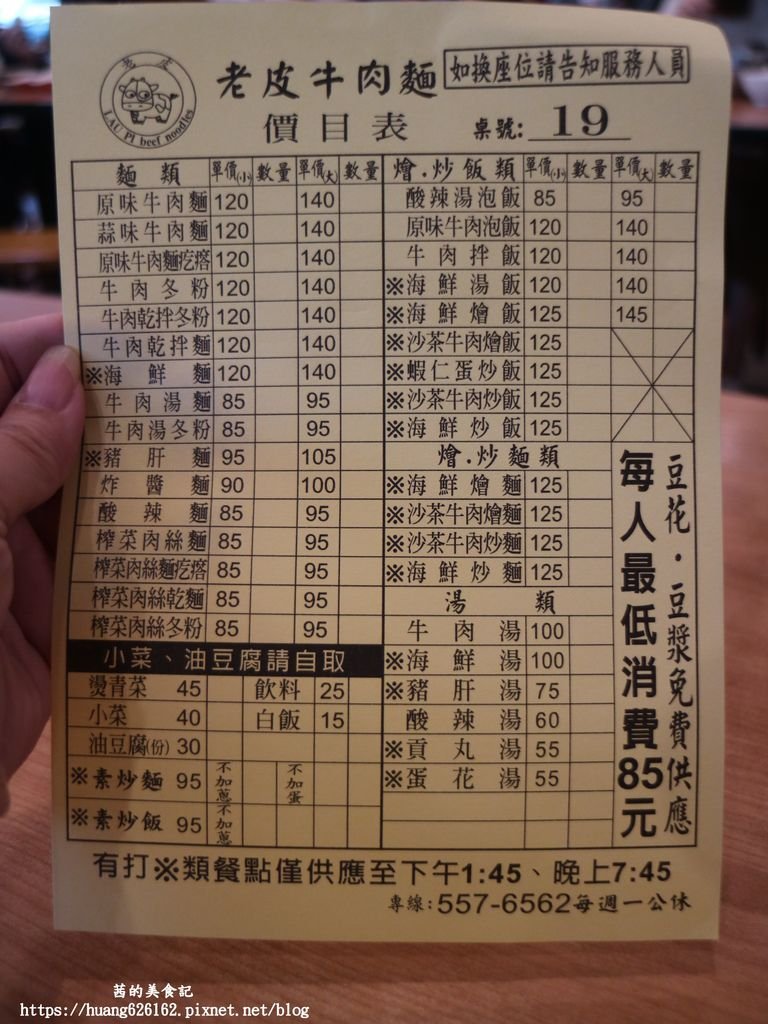 老皮
LAU PI beef noodles
老皮牛肉麵
如換座位請告知服務人員
價目表
桌號: 19
麵類 單價(小) 數量 單價(大) 數量
原味牛肉麵 120 140
蒜味牛肉麵 120 140
原味牛肉麵疙瘩 120 140
牛肉冬粉 120 140
牛肉乾拌冬粉 120 140
牛肉乾拌麵 120 140
※海鮮麵 120 140
牛肉湯麵 85 95
牛肉湯冬粉 85 95
※豬肝麵 95 105
炸醬麵 90 100
酸辣麵 85 95
榨菜肉絲麵 85 95
榨菜肉絲麵疙瘩 85 95
榨菜肉絲乾麵 85 95
榨菜肉絲冬粉 85 95
小菜、油豆腐請自取
燙青菜 45 飲料 25
小菜 40 白飯 15
油豆腐(份) 30
※素炒麵 95 不加蔥 不加蛋
※素炒飯 95 不加蔥
燴.炒飯類 單價(小) 數量 單價(大) 數量
酸辣湯泡飯 85 95
原味牛肉泡飯 120 140
牛肉拌飯 120 140
※海鮮湯飯 120 140
※海鮮燴飯 125 145
※沙茶牛肉燴飯 125
※蝦仁蛋炒飯 125
※沙茶牛肉炒飯 125
※海鮮炒飯 125
燴.炒麵類
※海鮮燴麵 125
※沙茶牛肉燴麵 125
※沙茶牛肉炒麵 125
※海鮮炒麵 125
湯類
牛肉湯 100
※海鮮湯 100
※豬肝湯 75
酸辣湯 60
※貢丸湯 55
※蛋花湯 55
豆花.豆漿免費供應
每人最低消費85元
有打※類餐點僅供應至下午1:45、晚上7:45
專線:557-6562每週一公休
茜的美食記
https://huang626162.pixnet.net/blog